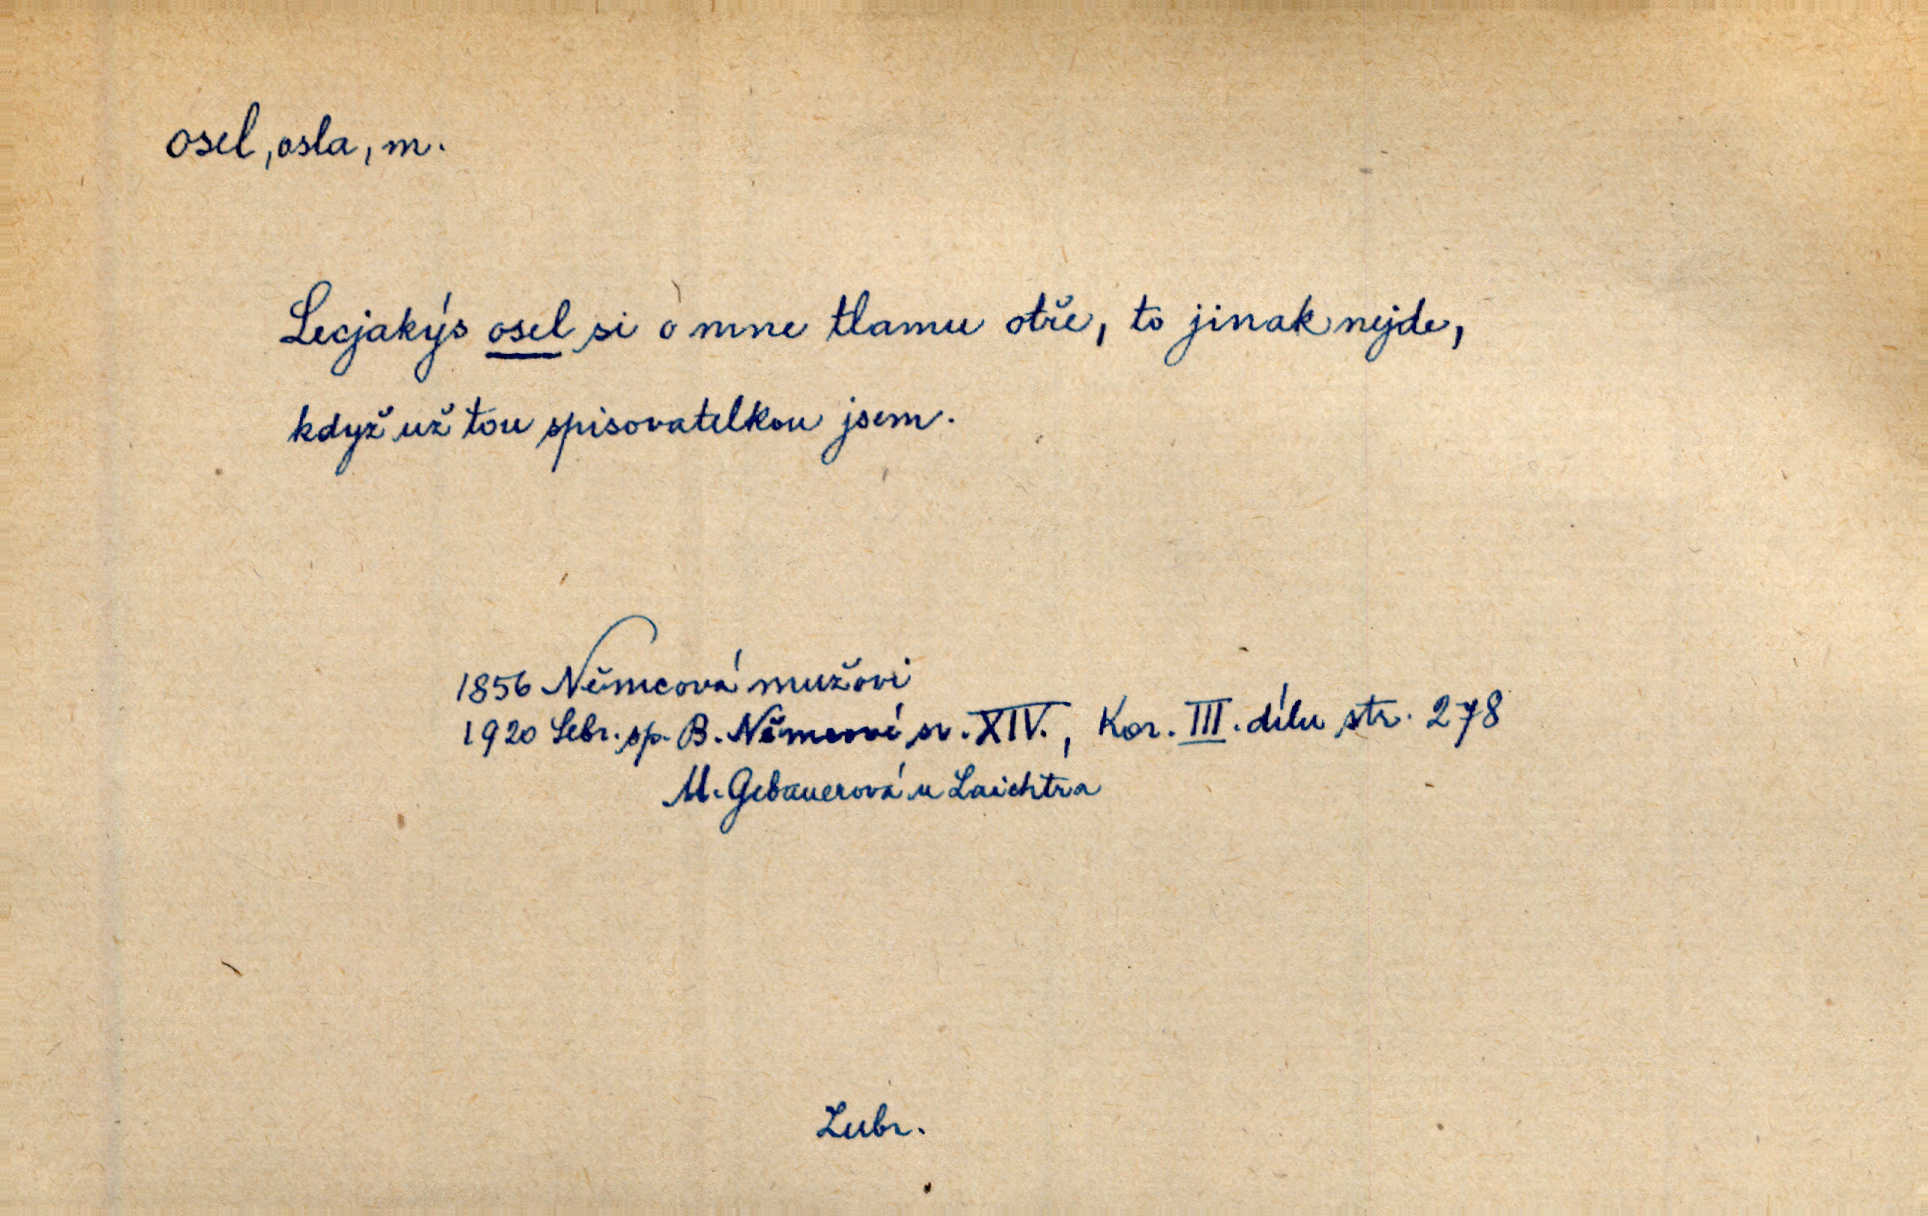 osel, osla, m.
Lecjakýs osel si o mne tlamu otře, to jinak nejde,
když už tou spisovatelkou jsem.
1856 Němcová mužovi
1920 Sebr. sp. B. Němcové sv. XIV., Kor. III. dílu str. 278
M. Gebauerová u Laichtra
Zubr.